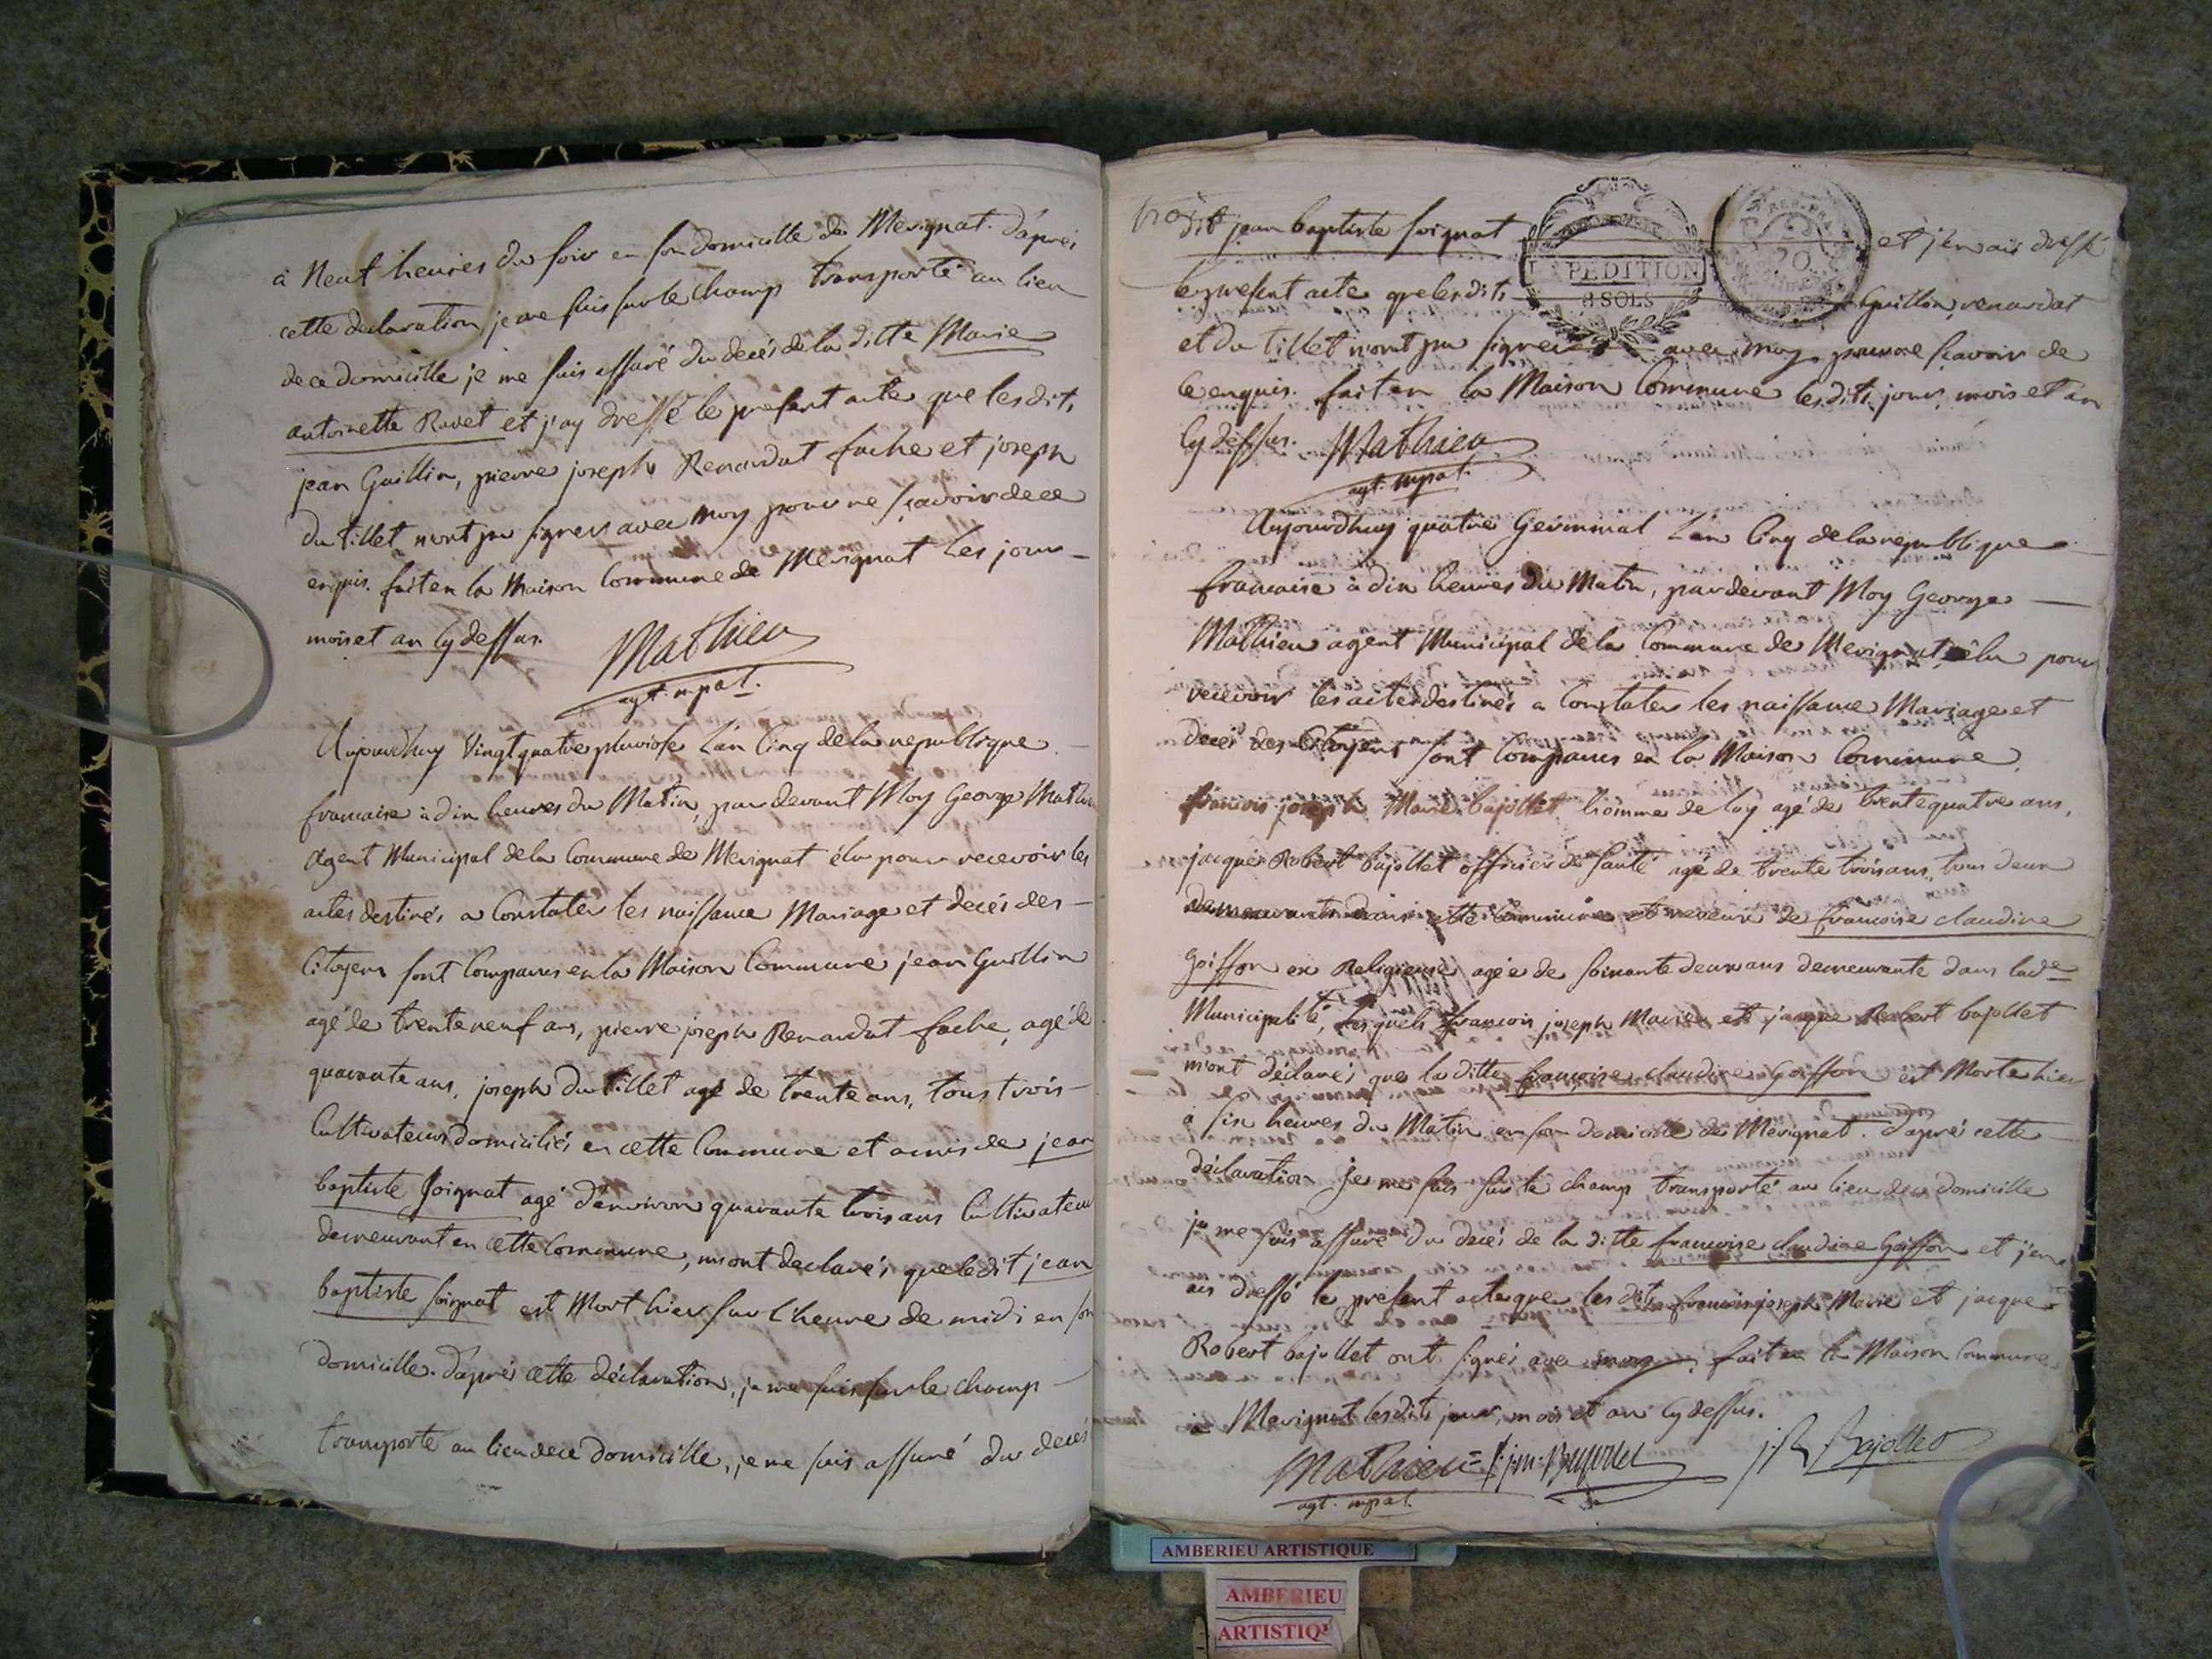 à Neuf heures du soir en son domicille de Merignat. d'après
cette declaration, je me suis sur le champ transporté au lieu
de ce domicille je me suis assuré du decés de la ditte Marie
antoinette Ravet et j'ay dressé le present acte que les dits
jean Guillin, pierre joseph Renardat fache et joseph
du tillet n'ont pu signer avec moy pour ne sçavoir de ce
enquis. fait en la Maison Commune de Merignat les jour
mois et an Cy dessus.
Mathieu
agt. mpal.
Aujourdhuy Vingt quatre pluviose L'an Cinq de la republique
francaise à dix heures du Matin, par devant Moy George Mathieu
Agent Municipal de la Commune de Merignat élu pour recevoir les
actes destinés a Constater les naissance Mariage et decés des
Citoyens sont Comparus en la Maison Commune jean Guillin
agé de trente neuf ans, pierre joseph Renardat fache, agé de
quarante ans, joseph du tillet agé de trente ans, tous trois
Cultivateurs domiciliés en cette Commune et amis de jean
baptiste soignat agé d'environ quarante trois ans Cultivateur
demeurant en cette Commune, m'ont declarés que ledit jean
baptiste soignat est Mort hier sur l'heure de midi en son
domicille. d'après cette déclaration, je me suis sur le champ
transporté au lieu de ce domicille, je me suis assuré du decés
trois
dit jean baptiste soignat et j'en ais dressé
le present acte que les dits Guillin, renardat
et du tillet n'ont pu signer avec moy pour ne sçavoir de
ce enquis. fait en la Maison Commune les dits jour, mois et an
Cy dessus. Mathieu
agt. mpal.
EXPEDITION
8 SOLS
REP. FRA
20
Aujourdhuy quatre Germinal L'an Cinq de la republique
francaise à dix heures du Matin, pardevant Moy George
Mathieu agent Municipal de la Commune de Merignat, élu pour
recevoir les actes destinés a Constater les naissance Mariage et
decés des Citoyens sont Comparus en la Maison Commune,
francois joseph Marie bajollet homme de loy agé de trente quatre ans,
jacques Robert bajollet officier de santé agé de trente trois ans, tous deux
demeurants dans cette Commune et neveux de francoise claudine
Goiffon ex Religieuse agée de soixante deux ans demeurante dans lade
Municipalité, lesquels francois joseph Marie et jacque Robert bajollet
m'ont déclarés que la ditte francoise claudine Goiffon est Morte hier
à six heures du Matin en son domicille de Merignat. d'après cette
déclaration je me suis sur le champ transporté au lieu de ce domicille
je me suis assuré du decés de la ditte francoise claudine Goiffon et j'en
ais dressé le present acte que les dits francois joseph Marie et jacque
Robert bajollet ont signés avec moy, fait en la Maison Commune
à Merignat lesdits jour, mois et an Cy dessus.
Mathieu f. j. m. Bajollet j. R. Bajollet
agt. mpal.
AMBERIEU ARTISTIQUE
AMBERIEU
ARTISTIQ